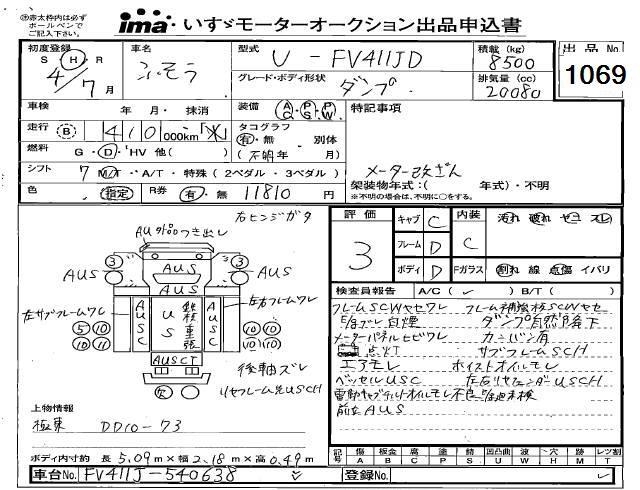 ※赤太枠内は必ず
ボールペンで
ご記入下さい。
ima・いすゞモーターオークション出品申込書
初度登録
S・H・R
4/7月
車名
ふそう
型式
U - FV411JD
グレード・ボディ形状
ダンプ
積載 (kg)
8500
排気量 (cc)
20080
出品No
1069
車検 年・月・抹消
装備 AC・PS・PW
特記事項
走行 B 410,000km「火」
タコグラフ
有・無 別体
(不明年・月)
燃料 G・D・HV 他( )
メーター改ざん
シフト 7 M/T・A/T・特殊(2ペダル・3ペダル)
架装物年式:( 年式)・不明
※不明の場合は、不明に○をする。
色 指定 R券 有・無 11810 円
右ヒンジガタ
AU外品つき出し
AUS
AUS
AUS
AUS
3
3
左サブフレームワレ
AUSC
US
鉄板重張
AUSC
左右フレームワレ
5 10
10 11
10 10
10 10
AUSCT
後軸ズレ
欠
リヤフレーム先USCH
評価
3
キャブ C
フレーム D
ボディ D
内装 C
汚れ 破れ ヤニ スレ
Fガラス 割れ 線 点傷 イバリ
検査員報告 A/C( ✓ ) B/T( )
フレームSCWヤセワレ フレーム補強板SCWヤセ
E/gブレ白煙 ダンプ自然降下
メーターパネルヒビワレ カンバン有
点火T サブフレームSCH
エアモレ ホイストオイルモレ
ベッセルUSC 左右リヤフェンダUSCH
前左AUS
上物情報
極東 DD10-73
ボディ内寸約 長 5.09 m×幅 2.18 m×高 0.49 m
記号 傷A 板金B 腐C 塗P 錆S 凹凸曲U 波W ヘコH 穴X 時T レツ割
車台No. FV411J-540638
登録No.